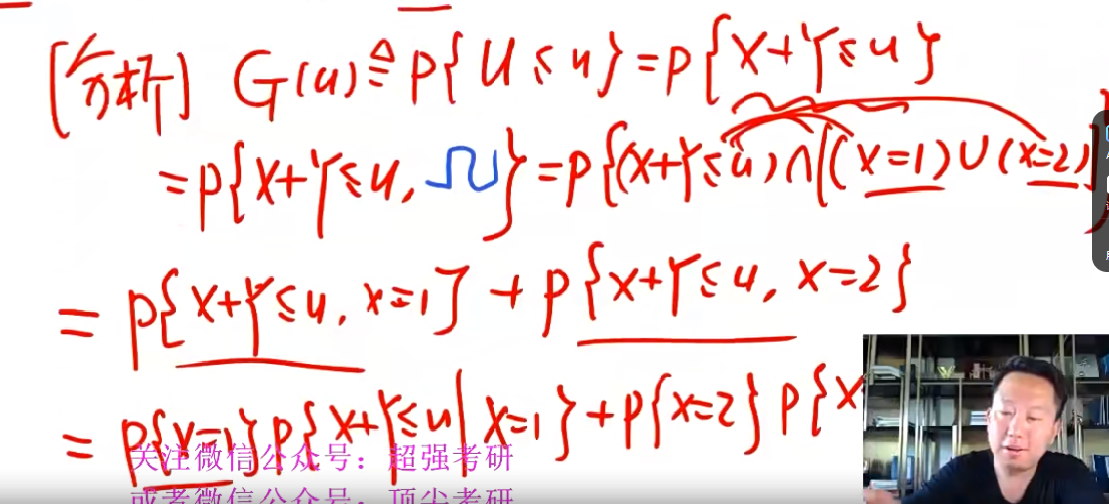 [分析] G(u)≜P{U≤u}=P{X+Y≤u}
=P{X+Y≤u, Ω}=P{(X+Y≤u)∩[(X=1)∪(X=2)]}
=P{X+Y≤u, X=1}+P{X+Y≤u, X=2}
=P{X=1}P{X+Y≤u|X=1}+P{X=2}P{X
关注微信公众号：超强考研
或者微信公众号：顶尖考研